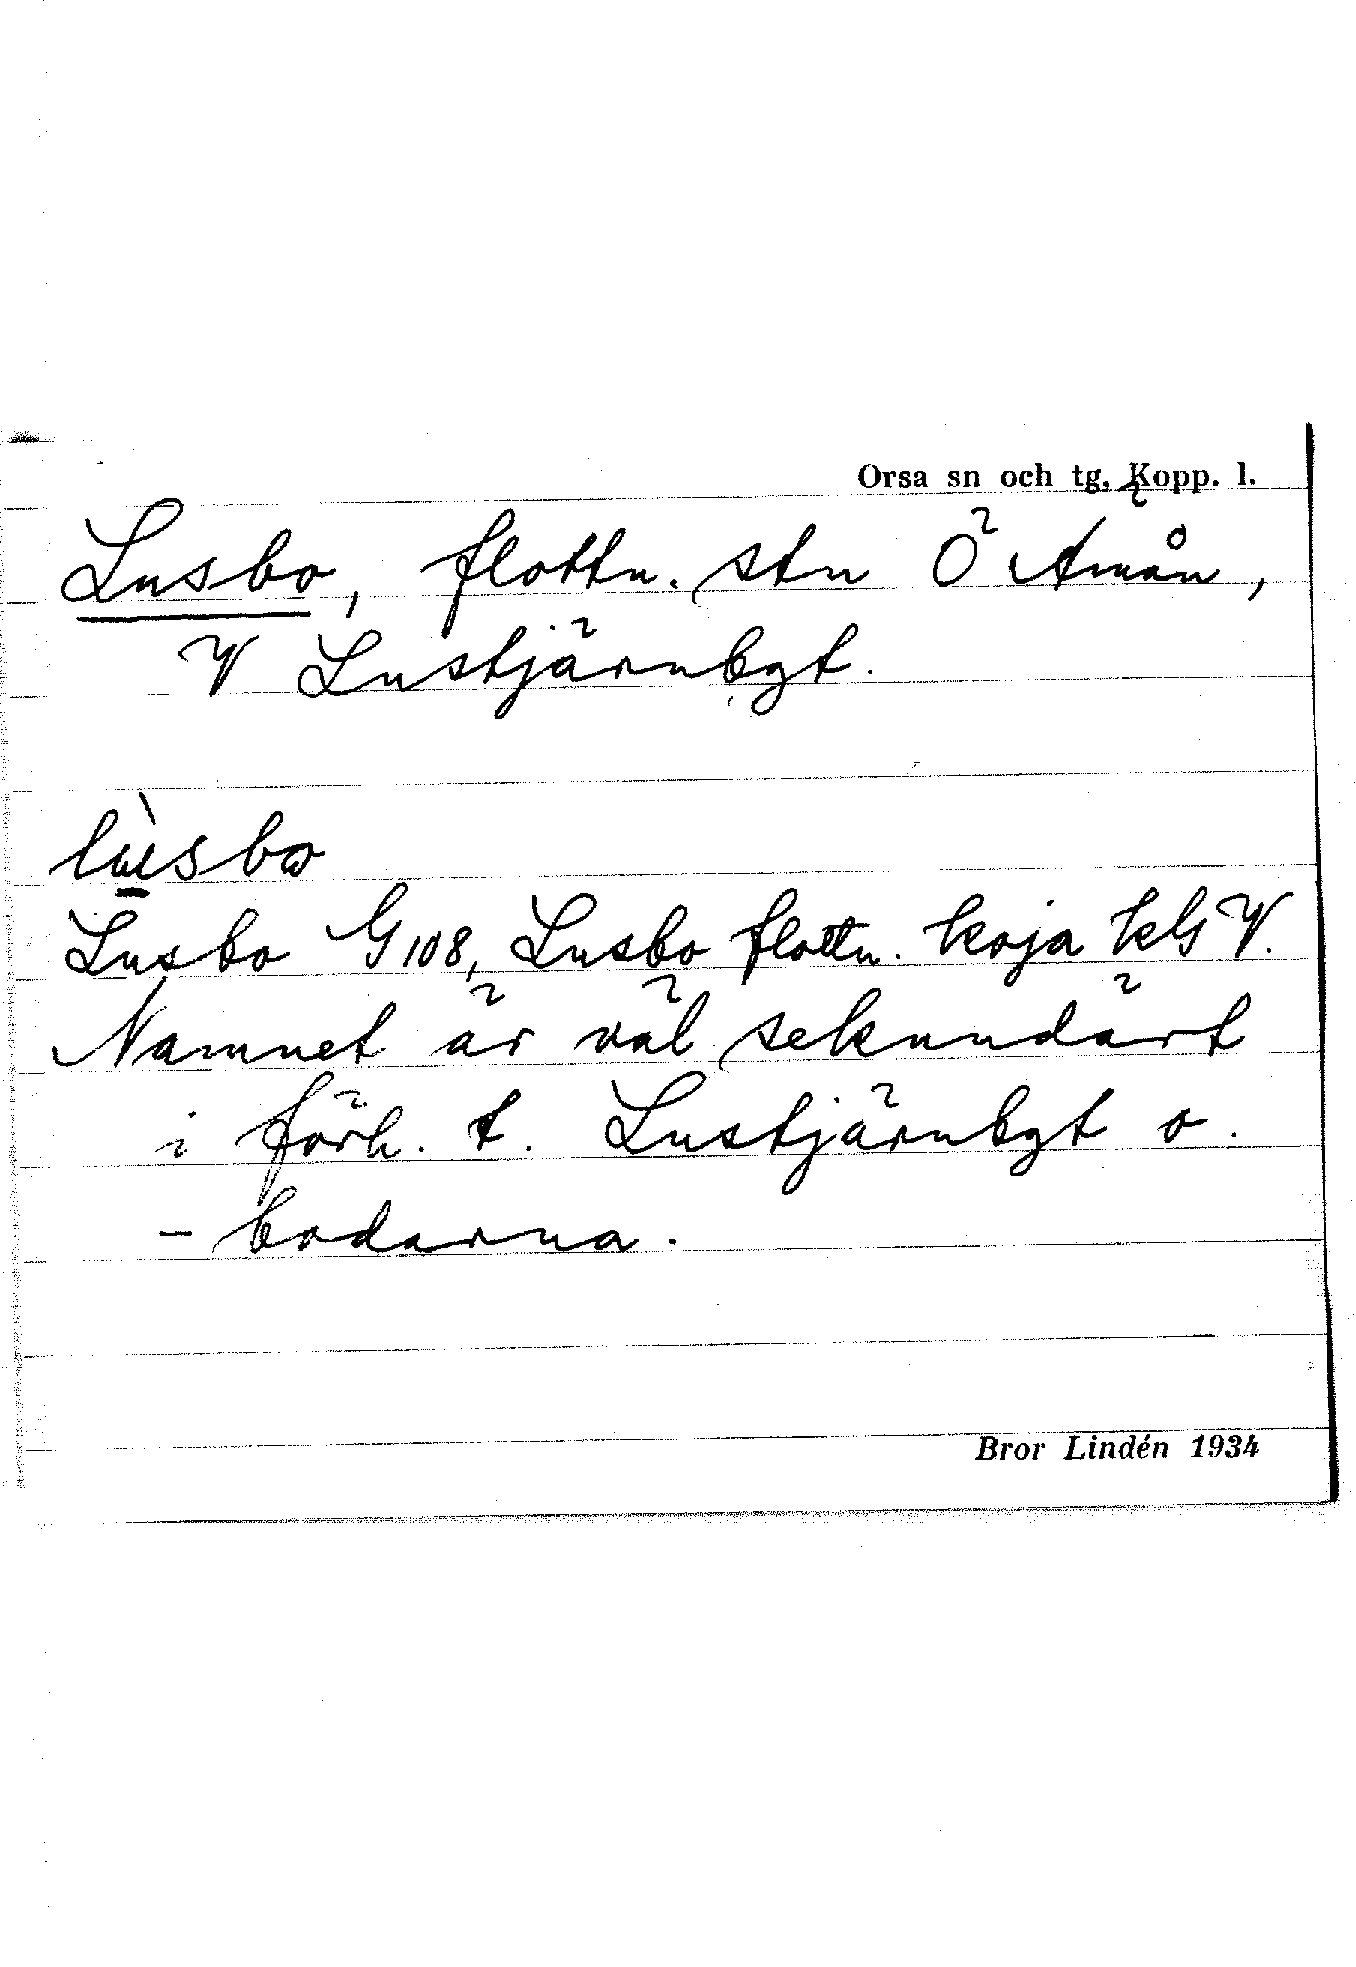 Orsa sn och tg, Kopp. l.
Lusbo, flottn. stn Ö Ämån,
V Lustjärnbgt.
lùsbo
Lusbo G 108, Lusbo flottn. koja kG V.
Namnet är väl sekundärt
i förh. t. Lustjärnbgt o.
- bodarna.
Bror Lindén 1934